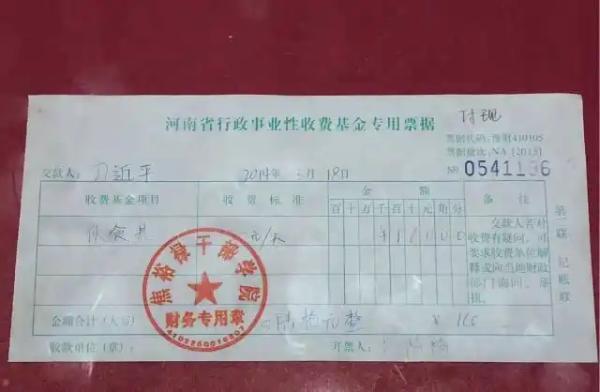 河南省行政事业性收费基金专用票据
付现
票据代码:豫财410105
票据批次:NA [2013]
№ 0541136
交款人:习近平 2014年3月18日
收费基金项目 收费标准 金额 备注
百十万千百十元角分
伙食费 元/天 ¥16000
交款人若对
收费有疑问,可
要求收费单位解
释或向当地财政
部门询问、举
报。
第一联 记账联
焦裕禄干部学院
财务专用章
金额合计(大写) 壹佰陆拾元整 ¥ 160
收款单位(章): 开票人: